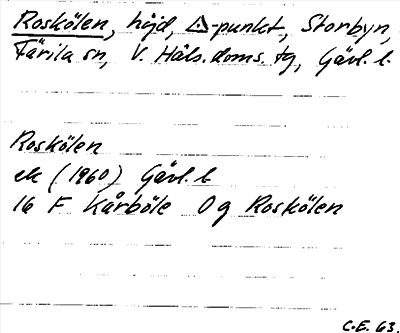 Roskölen, höjd, △-punkt, Storbyn,
Färila sn, V. Häls. doms. tg, Gävl. l.
Roskölen
ek (1960) Gävl. l.
16 F Kårböle 0g Roskölen
C.E. 63.